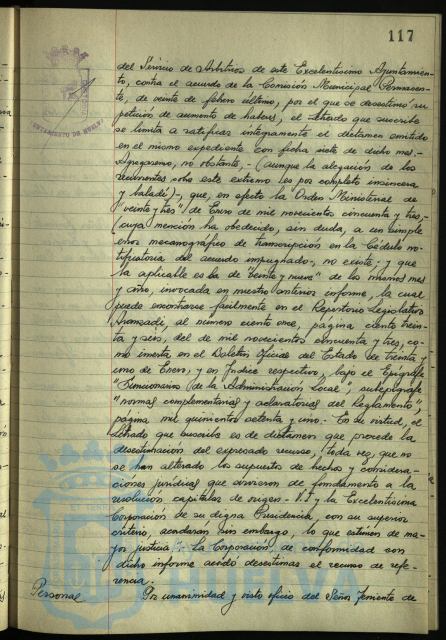 117
del Servicio de Arbitrios de este Excelentísimo Ayuntamien-
to, contra el acuerdo de la Comisión Municipal Permanen-
te, de veinte de febrero último, por el que se desestimó su
petición de aumento de haberes, el Letrado que suscribe
se limita a ratificar íntegramente el dictamen emitido
en el mismo expediente con fecha siete de dicho mes.-
Agregaremos, no obstante, - (aunque la alegación de los
recurrentes sobre este extremo es por completo insincera
y baladí)-, que, en efecto la Orden Ministerial de
"veinte y tres" de Enero de mil novecientos cincuenta y tres,-
(cuya mención ha obedecido, sin duda, a un simple
error mecanográfico de transcripción en la Cédula no-
tificatoria del acuerdo impugnado-, no existe; y que
la aplicable es la de "veinte y nueve" de los mismos mes
y año, invocada en nuestro anterior informe, la cual
puede encontrarse fácilmente en el Repertorio Legislativo
Aranzadi, al número ciento once, página ciento trein-
ta y seis, del de mil novecientos cincuenta y tres, co-
mo inserta en el Boletín Oficial del Estado de treinta y
uno de Enero, y en Indice respectivo, bajo el Epígrafe
"Funcionarios de la Administración Local", subepígrafe
"normas complementarias y aclaratorias del Reglamento",
página mil quinientos setenta y uno.- En su virtud, el
Letrado que suscribe es de dictamen que procede la
desestimación del expresado recurso, toda vez, que no
se han alterado los supuestos de hechos y considera-
ciones jurídicas que sirvieron de fundamento a la
resolución capitular de origen.- V.I. y la Excelentísima
Corporación de su digna Presidencia, con su superior
criterio, acordarán sin embargo, lo que estimen de ma-
yor justicia".- La Corporación, de conformidad con
dicho informe acordó desestimar el recurso de refe-
rencia.
Personal Por unanimidad y visto oficio del Señor Teniente de
AYUNTAMIENTO DE HUELVA
HUELVA